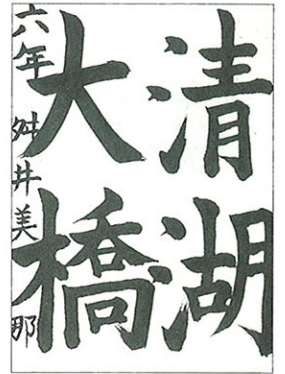 清湖
大橋
六年 舛井美那